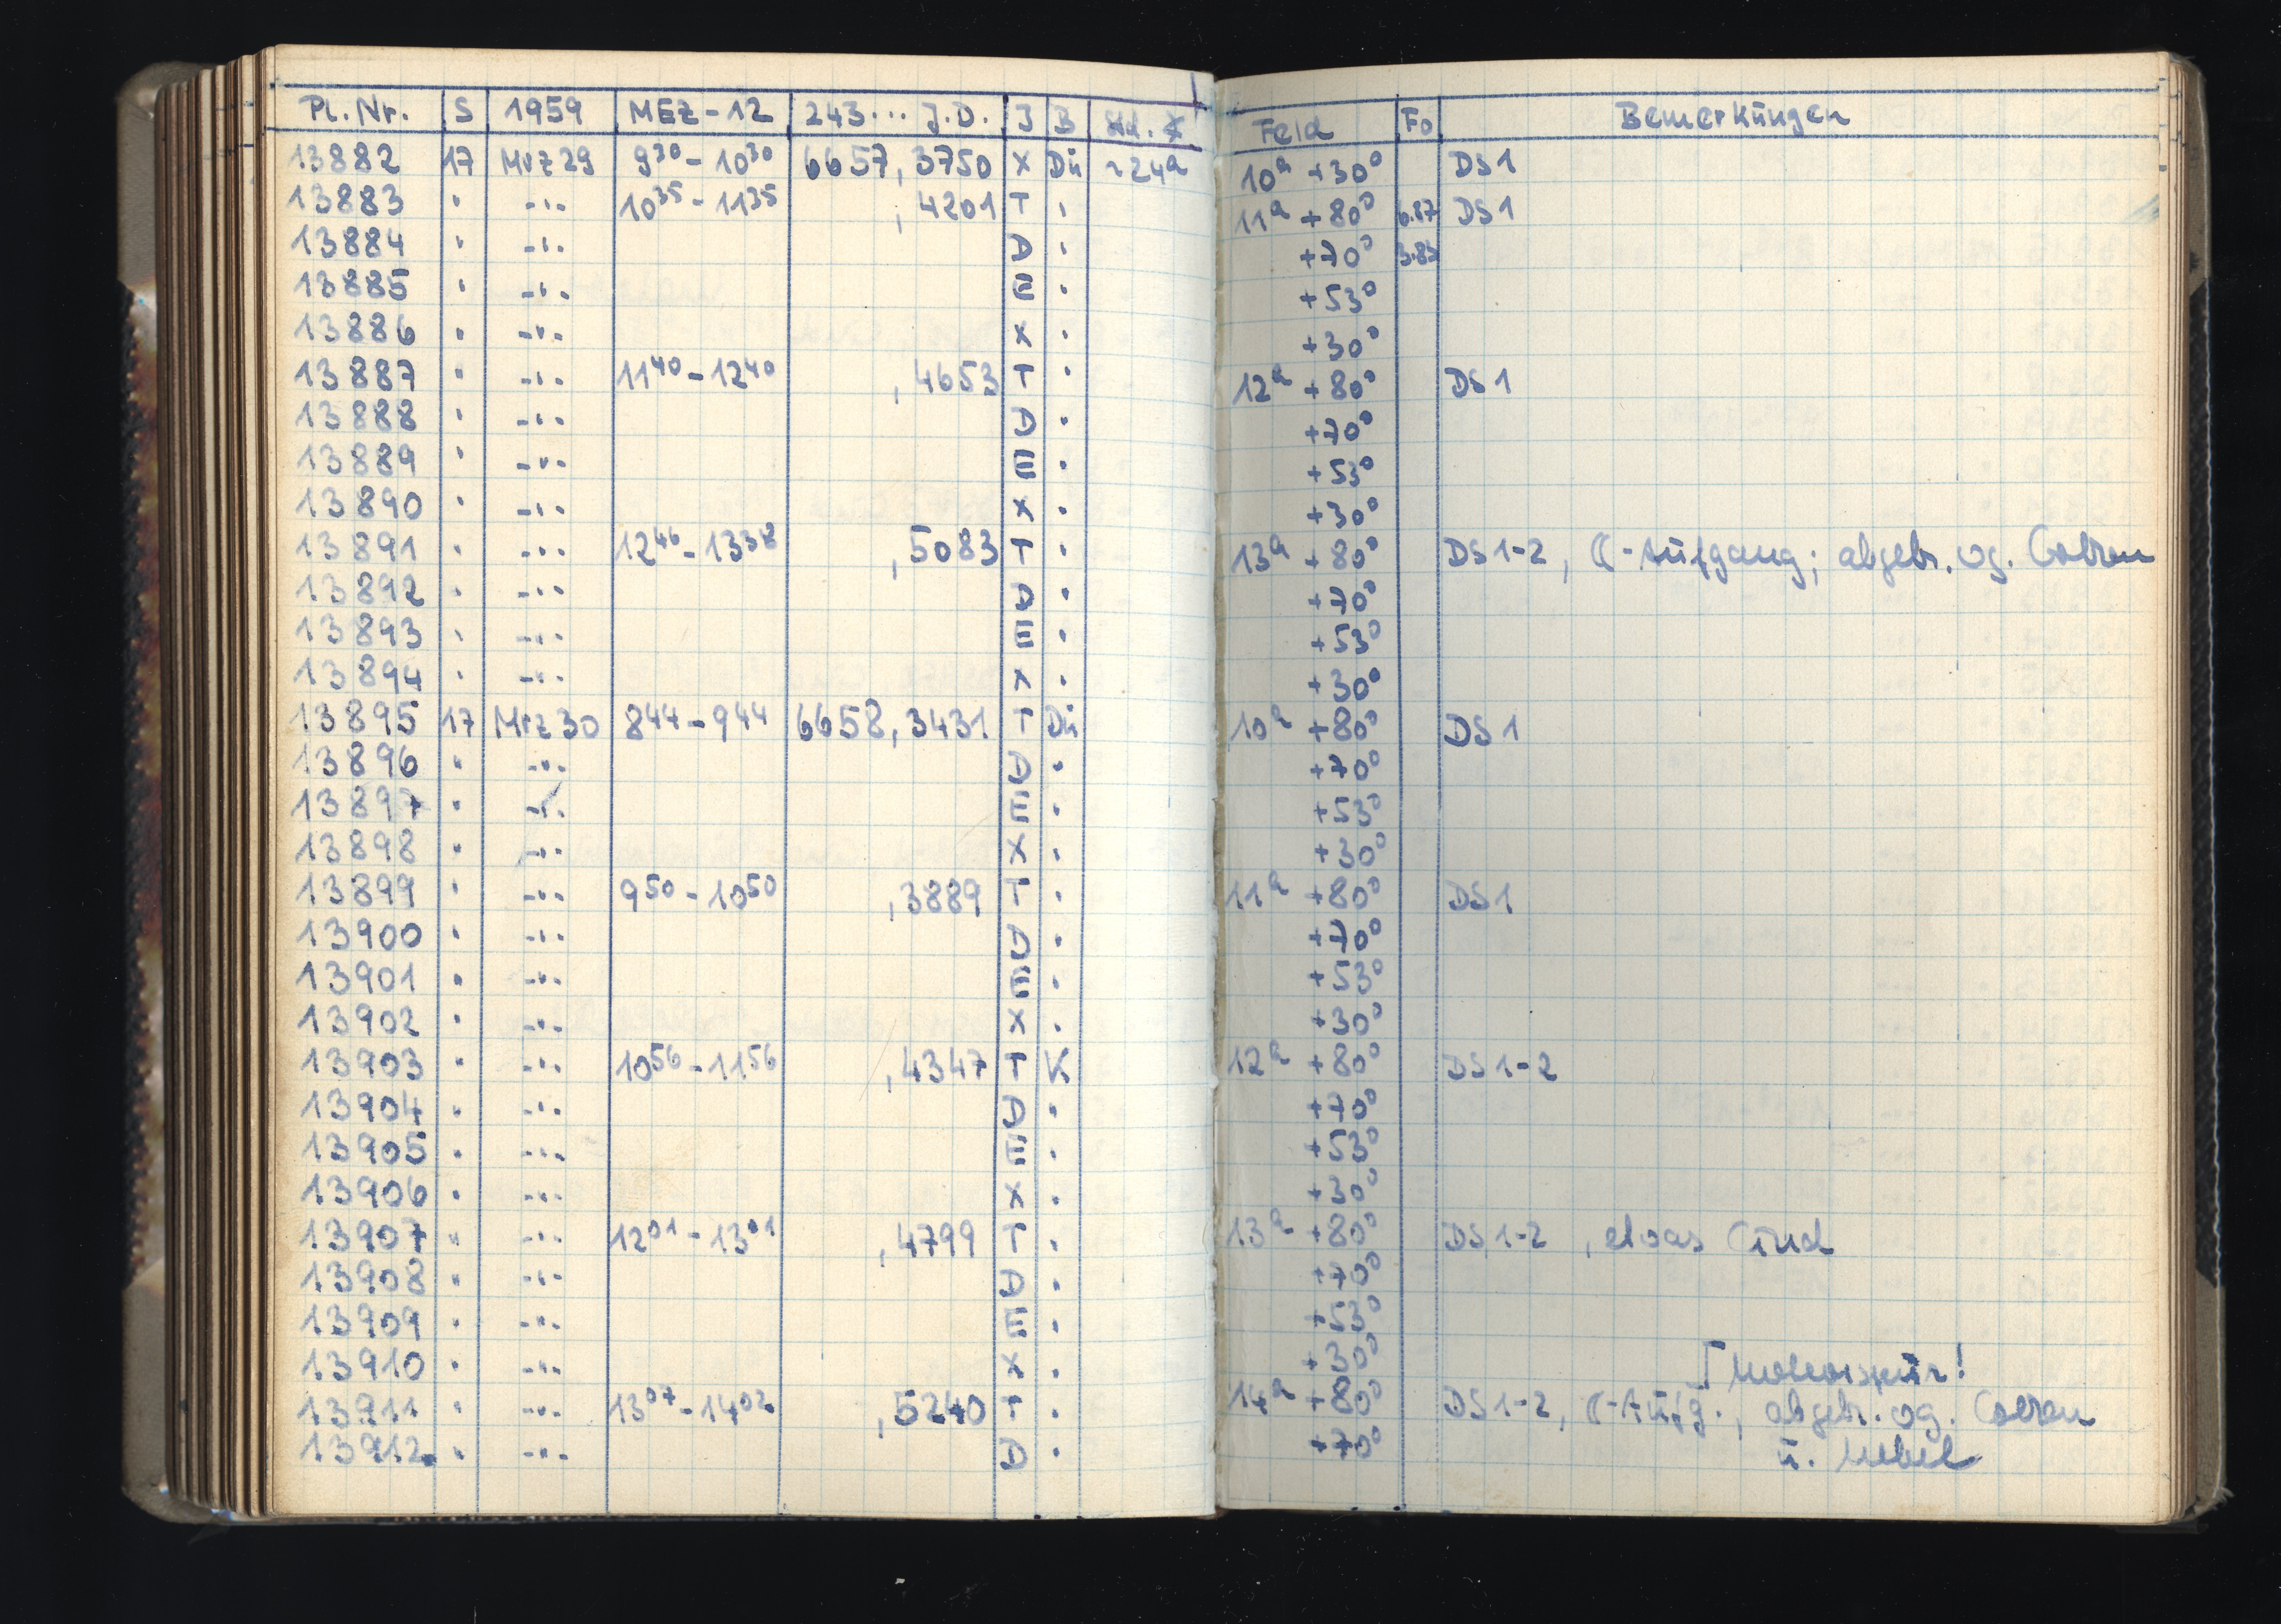 Pl.Nr. S 1959 MEZ-12 243... J.D. J B Std. X Feld Fo Bemerkungen
13882 17 Mrz 29 9³⁰ - 10³⁰ 6657,3750 X Dü ~24ᵃ 10ᵃ +30° DS1
13883 " -"- 10³⁵ - 11³⁵ ,4201 T " 11ᵃ +80° 6.87 DS1
13884 " -"- D " +70° 3.83
13885 " -"- E " +53°
13886 " -"- X " +30°
13887 " -"- 11⁴⁰ - 12⁴⁰ ,4653 T " 12ᵃ +80° DS1
13888 " -"- D " +70°
13889 " -"- E " +53°
13890 " -"- X " +30°
13891 " -"- 12⁴⁶ - 13³⁸ ,5083 T " 13ᵃ +80° DS1-2, ☾-Aufgang; abgebr. wg. Wolken
13892 " -"- D " +70°
13893 " -"- E " +53°
13894 " -"- X " +30°
13895 17 Mrz 30 8⁴⁴ - 9⁴⁴ 6658,3431 T Dü 10ᵃ +80° DS1
13896 " -"- D " +70°
13897 " -"- E " +53°
13898 " -"- X " +30°
13899 " -"- 9⁵⁰ - 10⁵⁰ ,3889 T " 11ᵃ +80° DS1
13900 " -"- D " +70°
13901 " -"- E " +53°
13902 " -"- X " +30°
13903 " -"- 10⁵⁶ - 11⁵⁶ ,4347 T K 12ᵃ +80° DS1-2
13904 " -"- D " +70°
13905 " -"- E " +53°
13906 " -"- X " +30°
13907 " -"- 12⁰¹ - 13⁰¹ ,4799 T " 13ᵃ +80° DS1-2, etwas Wind
13908 " -"- D " +70°
13909 " -"- E " +53°
13910 " -"- X " +30°
13911 " -"- 13⁰⁷ - 14⁰² ,5240 T " 14ᵃ +80° DS1-2, ☾-Aufg., abgebr. wg. Wolken
13912 " -"- D " +70° u. Nebel